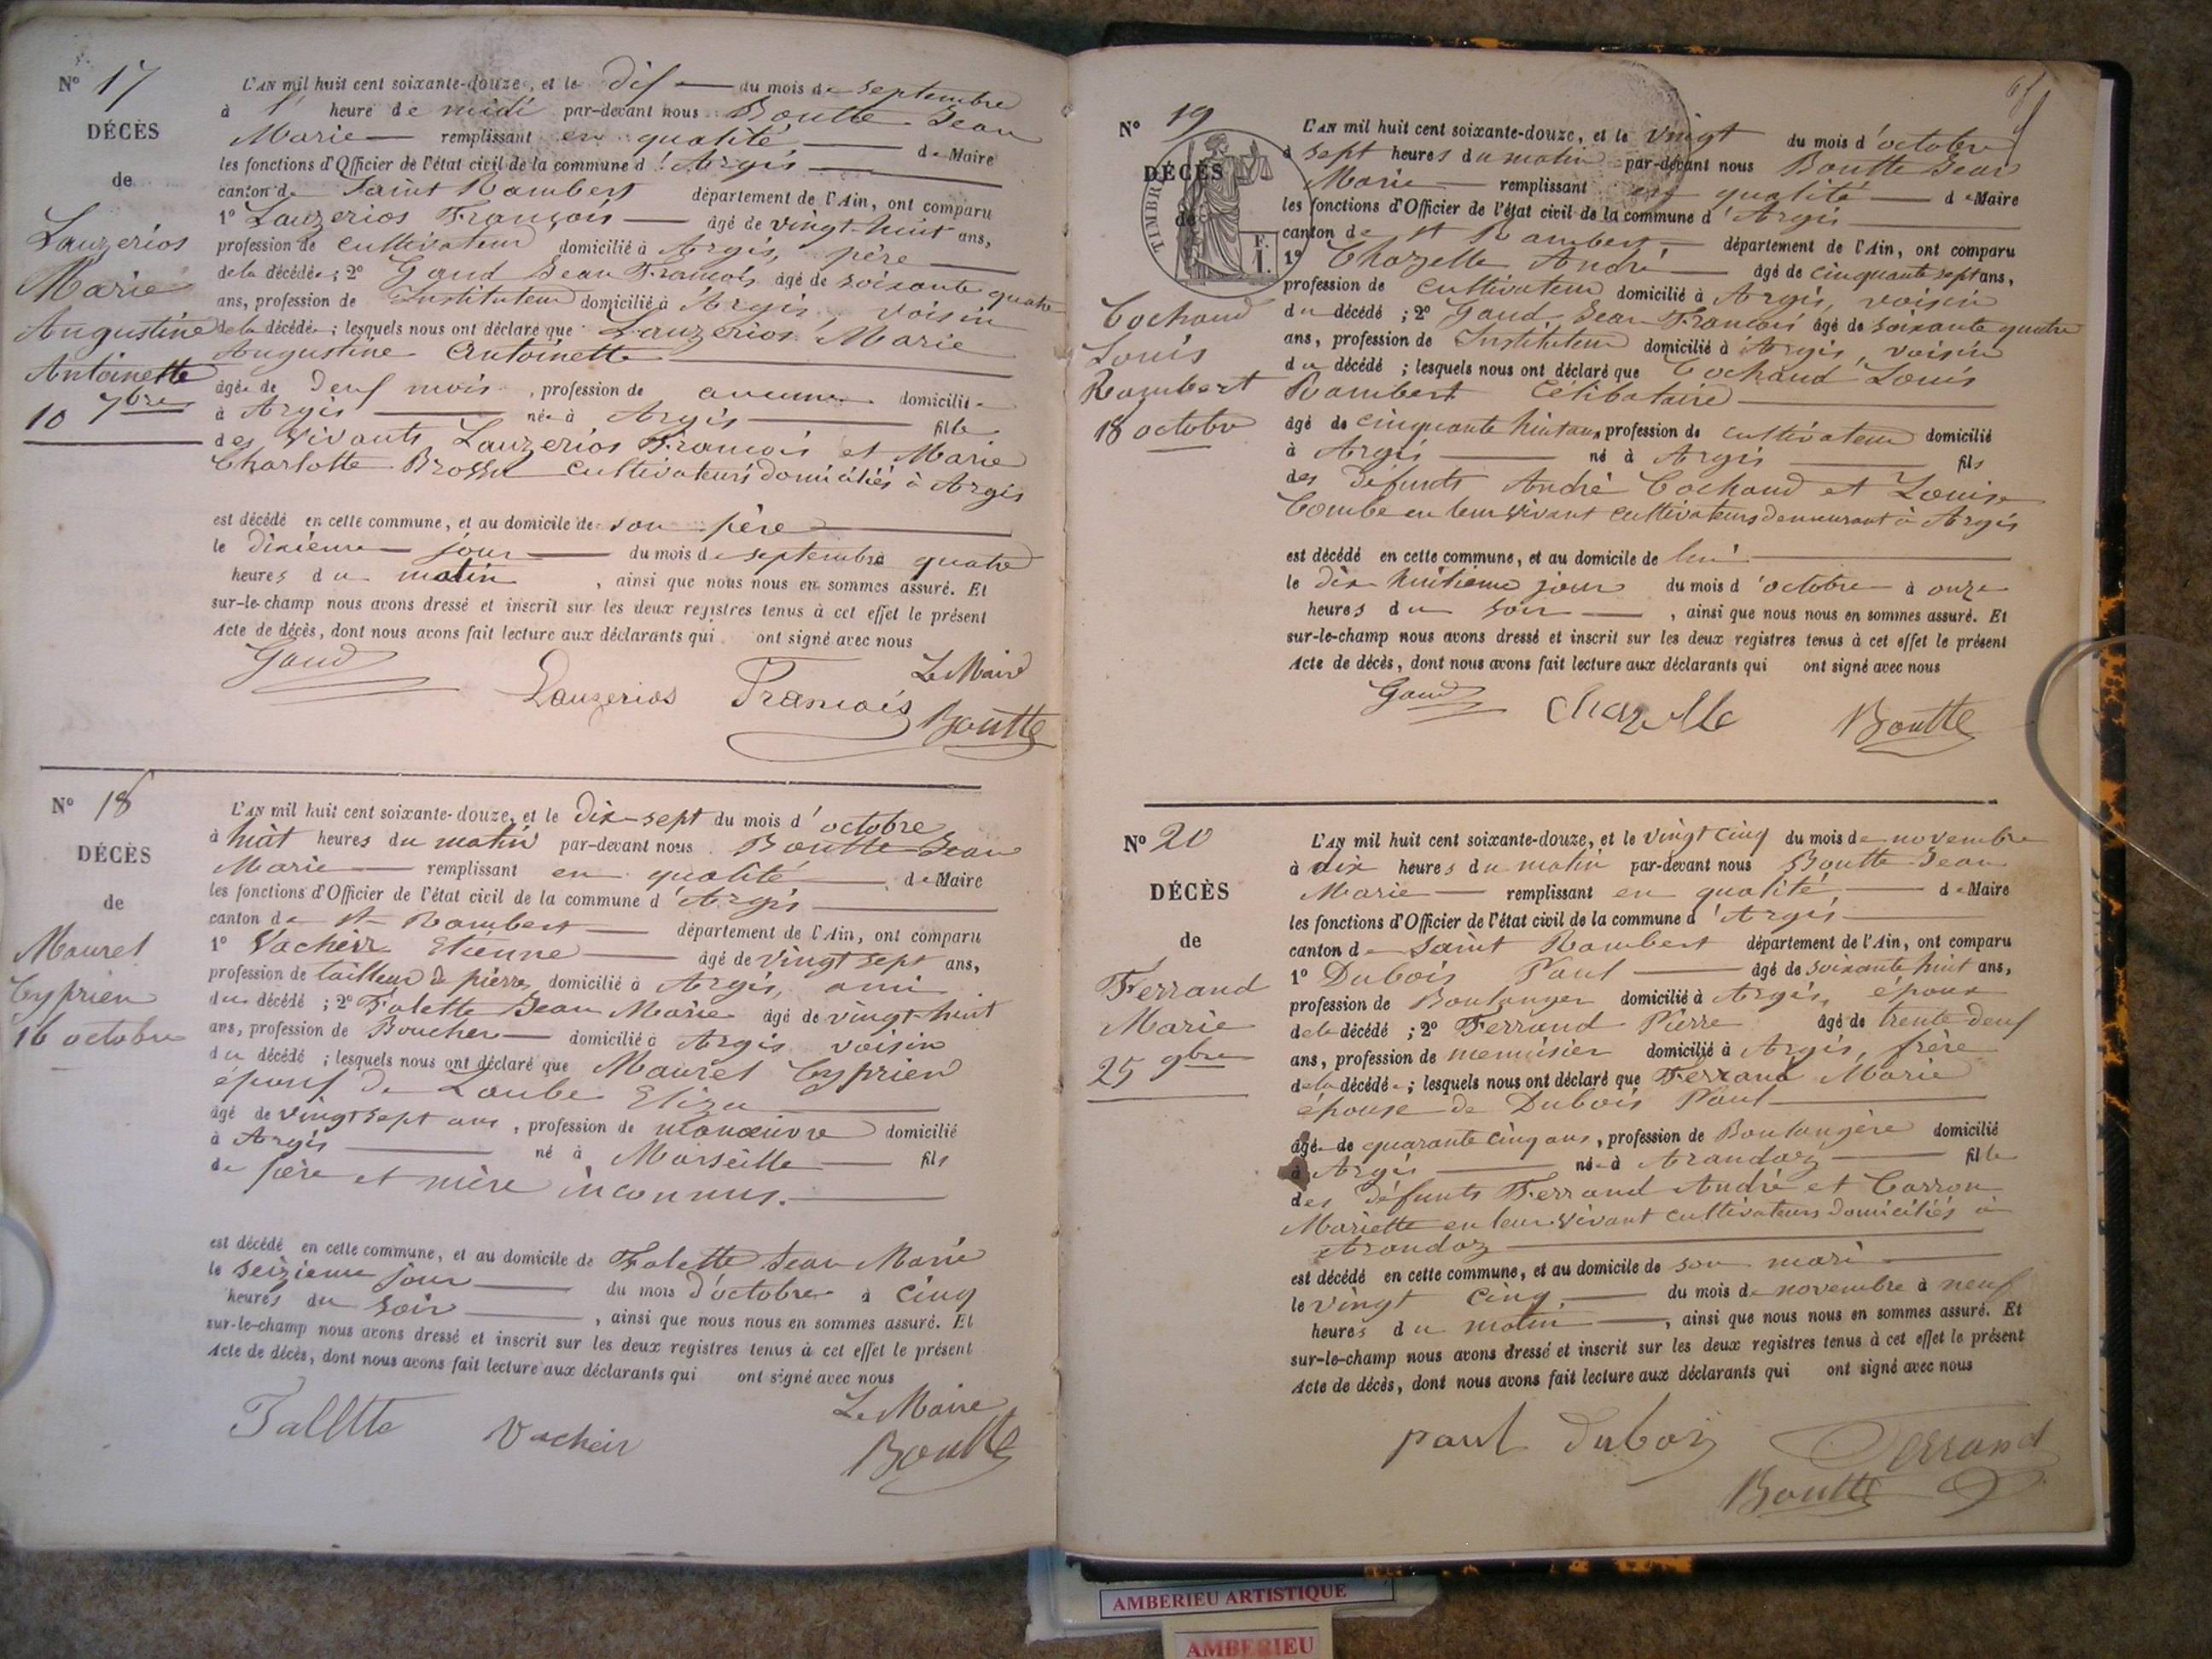 N° 17
DÉCÈS
de
Lauzerios
Marie
Augustine
Antoinette
10 7bre
L'AN mil huit cent soixante-douze, et le dix du mois de septembre
à l' heure de midi par-devant nous Boutte Jean
Marie remplissant en qualité de Maire
les fonctions d'Officier de l'état civil de la commune d'Argis
canton de Saint Rambert département de l'Ain, ont comparu
1° Lauzerios François âgé de vingt-huit ans,
profession de cultivateur domicilié à Argis, père
de la décédée; 2° Gaud Jean François âgé de soixante quatre
ans, profession de Instituteur domicilié à Argis, voisin
de la décédée; lesquels nous ont déclaré que Lauzerios Marie
Augustine Antoinette
âgée de deux mois, profession de aucune domiciliée
à Argis née à Argis fille
des vivants Lauzerios François et Marie
Charlotte cultivateurs domiciliés à Argis
est décédé en cette commune, et au domicile de son père
le dixième jour du mois de septembre quatre
heures du matin, ainsi que nous nous en sommes assuré. Et
sur-le-champ nous avons dressé et inscrit sur les deux registres tenus à cet effet le présent
Acte de décès, dont nous avons fait lecture aux déclarants qui ont signé avec nous
Gaud Lauzerios François Le Maire
Boutte
N° 18
DÉCÈS
de
Maurel
Cyprien
16 octobre
L'AN mil huit cent soixante-douze, et le dix-sept du mois d'octobre
à huit heures du matin par-devant nous Boutte Jean
Marie remplissant en qualité de Maire
les fonctions d'Officier de l'état civil de la commune d'Argis
canton de St Rambert département de l'Ain, ont comparu
1° Vacheir Etienne âgé de vingt sept ans,
profession de tailleur de pierre domicilié à Argis, ami
du décédé; 2° Falette Jean Marie âgé de vingt-huit
ans, profession de Boucher domicilié à Argis voisin
du décédé; lesquels nous ont déclaré que Maurel Cyprien
époux de Laube Eliza
âgé de vingt sept ans, profession de manœuvre domicilié
à Argis né à Marseille fils
de père et mère inconnus.
est décédé en cette commune, et au domicile de Falette Jean Marie
le seizième jour du mois d'octobre à cinq
heures du soir, ainsi que nous nous en sommes assuré. Et
sur-le-champ nous avons dressé et inscrit sur les deux registres tenus à cet effet le présent
Acte de décès, dont nous avons fait lecture aux déclarants qui ont signé avec nous
Fallette Vacheir Le Maire
Boutte
N° 19
DÉCÈS
de
TIMBRE
F.
1.
Cochaud
Louis
Rambert
18 octobre
L'AN mil huit cent soixante-douze, et le vingt du mois d'octobre
à sept heures du matin par-devant nous Boutte Jean
Marie remplissant en qualité de Maire
les fonctions d'Officier de l'état civil de la commune d'Argis
canton de St Rambert, département de l'Ain, ont comparu
1° Chazelle André âgé de cinquante sept ans,
profession de cultivateur domicilié à Argis, voisin
du décédé; 2° Gaud Jean François âgé de soixante quatre
ans, profession de Instituteur domicilié à Argis, voisin
du décédé; lesquels nous ont déclaré que Cochaud Louis
Rambert Célibataire
âgé de cinquante huit ans, profession de cultivateur domicilié
à Argis né à Argis fils
des défunts André Cochaud et Louise
Combe en leur vivant cultivateurs demeurant à Argis
est décédé en cette commune, et au domicile de lui
le dix huitième jour du mois d'octobre à onze
heures du soir, ainsi que nous nous en sommes assuré. Et
sur-le-champ nous avons dressé et inscrit sur les deux registres tenus à cet effet le présent
Acte de décès, dont nous avons fait lecture aux déclarants qui ont signé avec nous
Gaud Chazelle Boutte
N° 20
DÉCÈS
de
Ferrand
Marie
25 9bre
L'AN mil huit cent soixante-douze, et le vingt cinq du mois de novembre
à dix heures du matin par-devant nous Boutte Jean
Marie remplissant en qualité de Maire
les fonctions d'Officier de l'état civil de la commune d'Argis
canton de Saint Rambert département de l'Ain, ont comparu
1° Dubois Paul âgé de soixante huit ans,
profession de Boulanger domicilié à Argis, époux
de la décédé; 2° Ferrand Pierre âgé de trente deux
ans, profession de menuisier domicilié à Argis, frère
de la décédée; lesquels nous ont déclaré que Ferrand Marie
épouse de Dubois Paul
âgée de quarante cinq ans, profession de Boulangère domicilié
à Argis née à Arandaz fille
des défunts Ferrand André et Carron
Mariette en leur vivant cultivateurs domiciliés à
Arandaz
est décédé en cette commune, et au domicile de son mari
le vingt cinq du mois de novembre à neuf
heures du matin, ainsi que nous nous en sommes assuré. Et
sur-le-champ nous avons dressé et inscrit sur les deux registres tenus à cet effet le présent
Acte de décès, dont nous avons fait lecture aux déclarants qui ont signé avec nous
paul dubois Ferrand
Boutte
AMBERIEU ARTISTIQUE
AMBERIEU